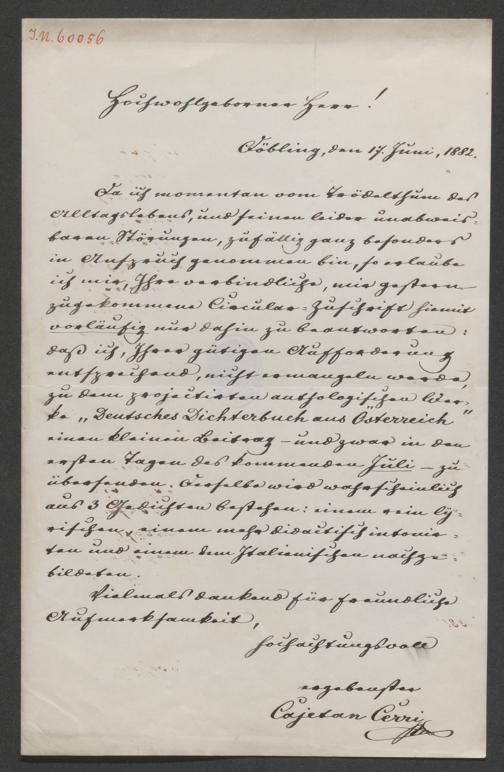 I.N. 60056
Hochwohlgeborner Herr!
Döbling, den 17. Juni, 1882.
Da ich momentan vom Trödelthum des
Alltagslebens, und seinen leider unabweis-
baren Störungen, zufällig ganz besonders
in Anspruch genommen bin, so erlaube
ich mir, Ihre verbindliche, mir gestern
zugekommene Circular-Zuschrift hiemit
vorläufig nur dahin zu beantworten:
daß ich, Ihrer gütigen Aufforderung
entsprechend, nicht ermangeln werde,
zu dem projectirten anthologischen Wer-
ke „Deutsches Dichterbuch aus Österreich"
einen kleinen Beitrag – und zwar in den
ersten Tagen des kommenden Juli – zu
übersenden. Derselbe wird wahrscheinlich
aus 3 Gedichten bestehen: einem rein ly-
rischen, einem mehr didactisch intonir-
ten und einem dem Italienischen nachge-
bildeten.
Vielmals dankend für freundliche
Aufmerksamkeit,
hochachtungsvoll
ergebenster
Cajetan Cerri